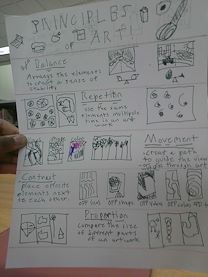 PRINCIPLES
OF ART!
Balance
Arranges the elements
to craft a sense of
stability
Repetition
use the same
elements multiple
time in an art
work
Shape
color
Movement
creat a path
to guide the view
through art
Contrast
place opposite
elements next
to each other.
Proportion
Compare the size
of different parts
of an art work